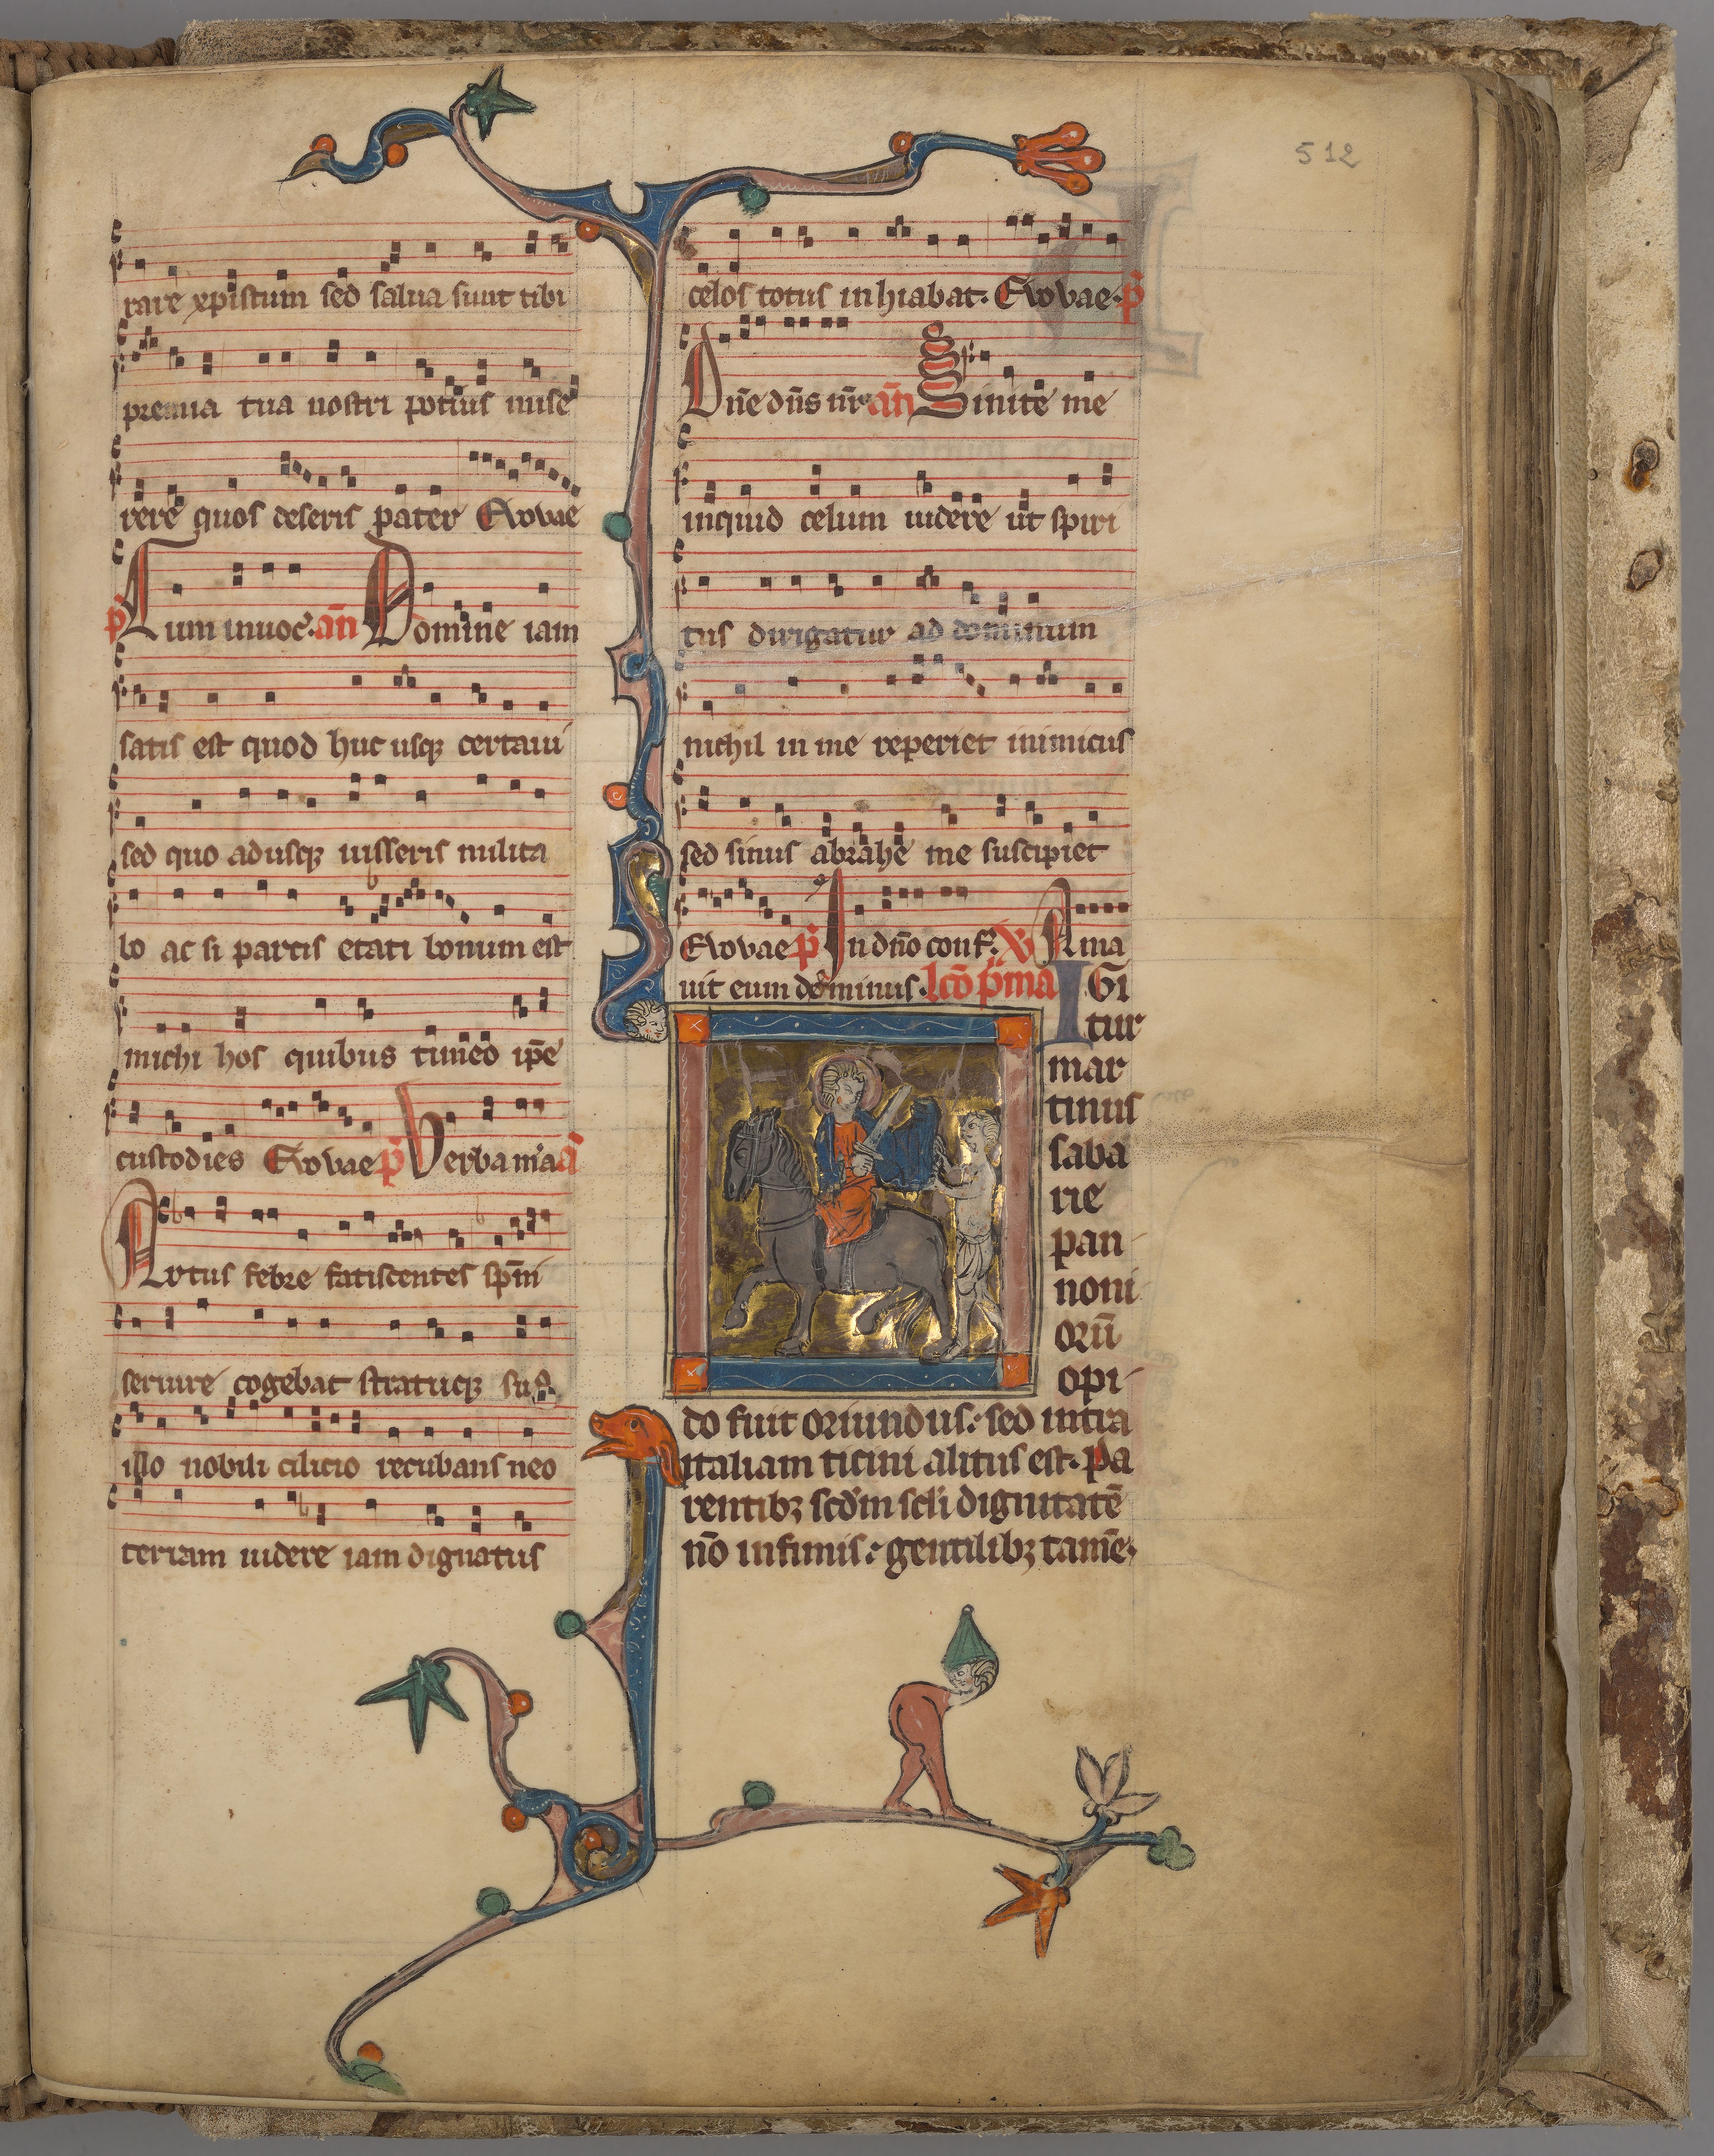 512
rare xpistum sed salua sunt tibi
premia tua nostri potius mise
rere quos deseris pater Euouae
p̄ Cum inuoc̄. an̄ Domine iam
satis est quod huc usqꝫ certaui
sed quo adusqꝫ iusseris milita
bo ac si parcis etati bonum est
michi hos quibus timeo ip̄e
custodies Euouae p̄ Verba m̄a a̅
Artus febre fatiscentes sp̄ui
seruire cogebat stratuqꝫ suo
illo nobili cilicio recubans neo
terram uidere iam dignatus
celos totus inhiabat. Euouae. p̄
Dn̄e dn̄s nr̄ an̄ Sinite me
inquid celum uidere ut spiri
tus dirigatur ad dominum
nichil in me reperiet inimicus
sed sinus abrahe me suscipiet
Euouae p̄ In dn̄o conf. ꝟ Ama
uit eum dominus. lcō p̄ma IGi
tur
mar
tinus
saba
rie
pan
noni
orū
opi
do fuit oriundus: sed intra
ytaliam ticini alitus est. Pa
rentibꝫ scd̄m scl̄i dignitatē
nō infimis: gentilibꝫ tamē.